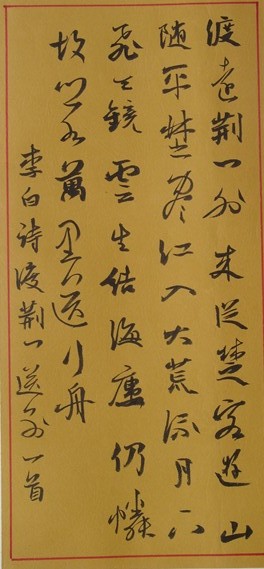 渡遠荆门外来从楚客遊山
随平埜尽江入大荒流月下
飞天镜雲生结海楼仍憐
故乡水萬里送行舟
李白诗渡荆门送别一首